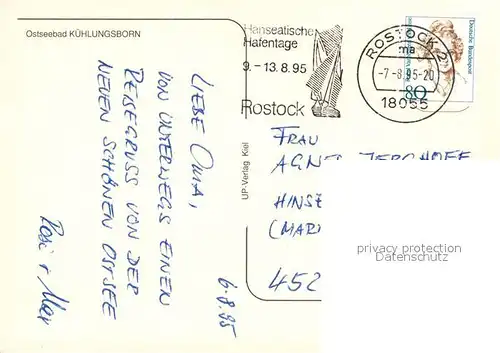 Ostseebad KÜHLUNGSBORN
Hanseatische
Hafentage
9. - 13.8.95
Rostock
ROSTOCK 2
ma
-7.-8.95-20
18055
Deutsche Bundespost
80
UP-Verlag Kiel
LIEBE OMA,
VON UNTERWEGS EINEN
REISEGRUSS VON DER
NEUEN SCHÖNEN OSTSEE
Rosi + Max
6.8.95
FRAU
AGNES
HINS
(MAR
452
privacy protection
Datenschutz